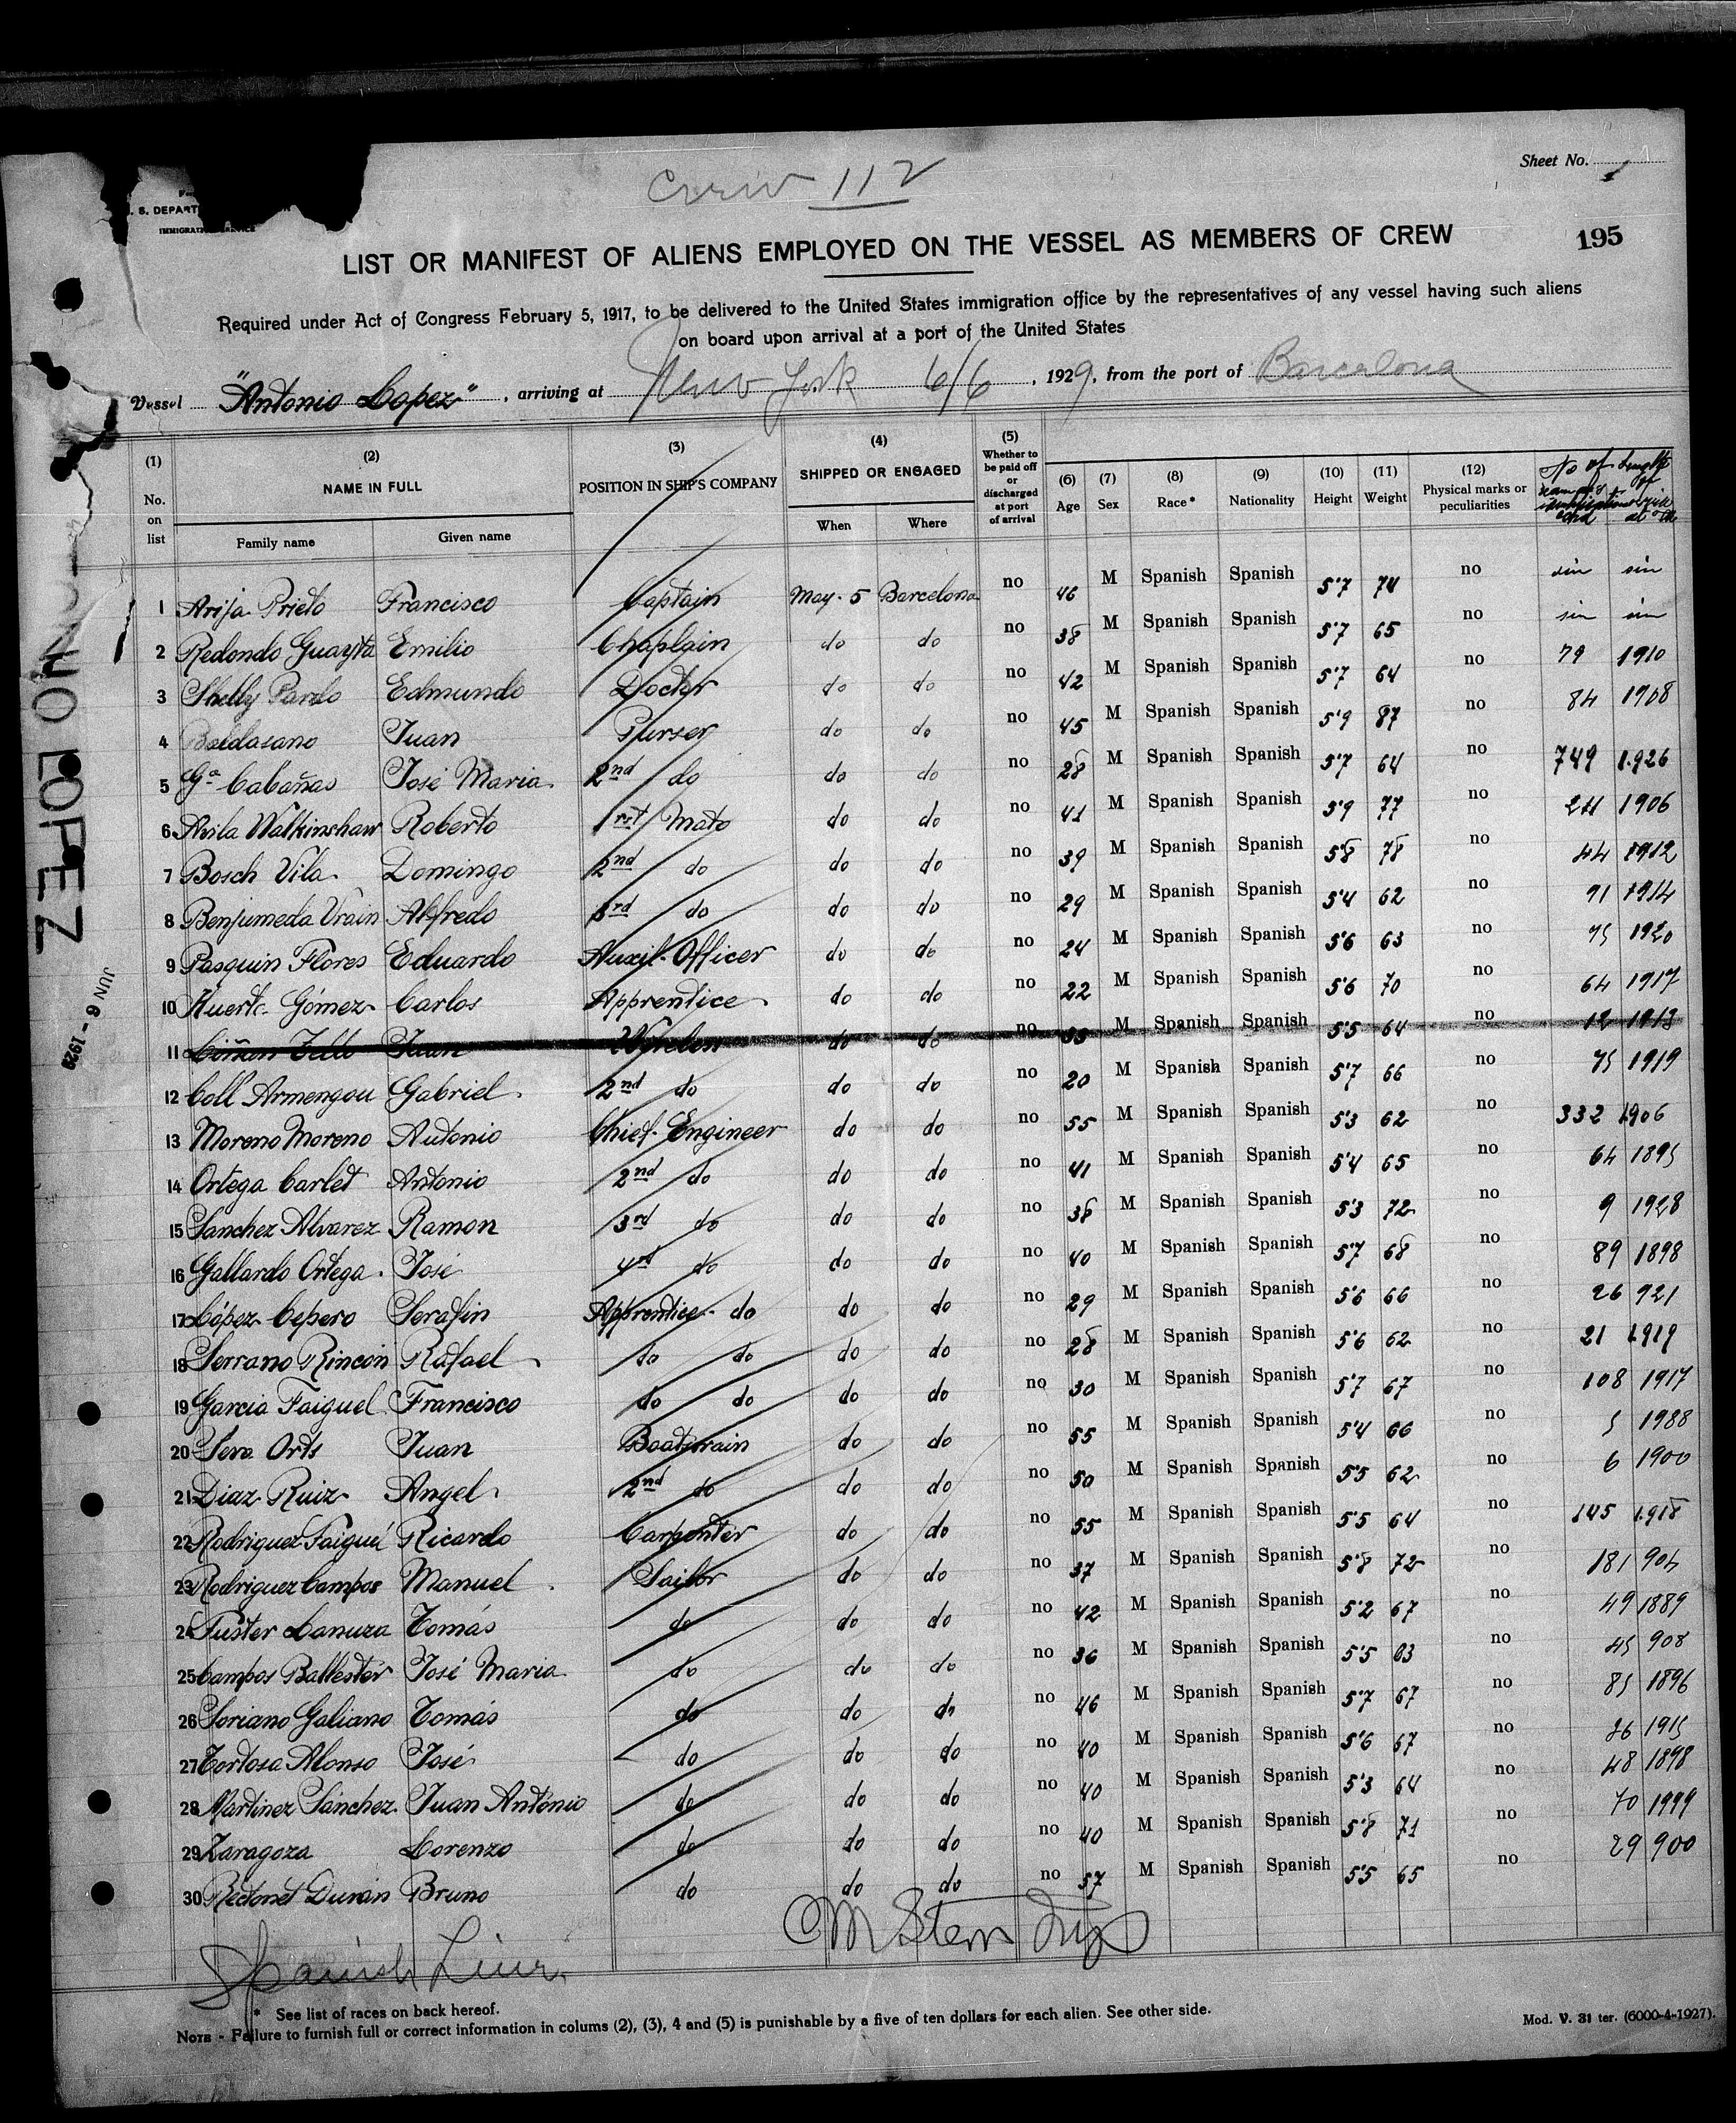 Sheet No. 1
Crew 112
S. DEPART
IMMIGRAT
195
LIST OR MANIFEST OF ALIENS EMPLOYED ON THE VESSEL AS MEMBERS OF CREW
Required under Act of Congress February 5, 1917, to be delivered to the United States immigration office by the representatives of any vessel having such aliens
on board upon arrival at a port of the United States
Vessel "Antonio Lopez", arriving at New York 6/6, 1929, from the port of Barcelona
(1) No. on list
(2) NAME IN FULL Family name Given name
(3) POSITION IN SHIP'S COMPANY
(4) SHIPPED OR ENGAGED When Where
(5) Whether to be paid off or discharged at port of arrival
(6) Age
(7) Sex
(8) Race*
(9) Nationality
(10) Height
(11) Weight
(12) Physical marks or peculiarities
No of Length of
1 Arija Prieto Francisco Captain May. 5 Barcelona no 46 M Spanish Spanish 5'7 74 no sin sin
2 Redondo Emilio Chaplain do do no 38 M Spanish Spanish 5'7 65 no sin sin
3 Shelly Pardo Edmundo Doctor do do no 42 M Spanish Spanish 5'7 64 no 79 1910
4 Baldasano Juan Purser do do no 45 M Spanish Spanish 5'9 87 no 84 1908
5 Gª Cabañas José Maria 2nd do do do no 28 M Spanish Spanish 5'7 64 no 749 1.926
6 Avila Walkinshaw Roberto 1rst Mato do do no 41 M Spanish Spanish 5'9 77 no 211 1906
7 Bosch Vila Domingo 2nd do do do no 39 M Spanish Spanish 5'8 78 no 44 1912
8 Benjumeda Alfredo 3rd do do do no 29 M Spanish Spanish 5'4 62 no 91 1914
9 Pasquin Flores Eduardo Auxil. Officer do do no 24 M Spanish Spanish 5'6 63 no 75 1920
10 Huerta Gómez Carlos Apprentice do do no 22 M Spanish Spanish 5'6 70 no 64 1917
11 Tello Juan do do no 33 M Spanish Spanish 5'5 64 no 12 1913
12 Coll Armengou Gabriel 2nd do do do no 20 M Spanish Spanish 5'7 66 no 75 1919
13 Moreno Moreno Antonio Chief. Engineer do do no 55 M Spanish Spanish 5'3 62 no 332 1.906
14 Ortega Carlet Antonio 2nd do do do no 41 M Spanish Spanish 5'4 65 no 64 1895
15 Sanchez Alvarez Ramon 3rd do do do no 38 M Spanish Spanish 5'3 72 no 9 1928
16 Gallardo Ortega José 4rd do do do no 40 M Spanish Spanish 5'7 68 no 89 1898
17 López Cepero Serafin Apprentice do do do no 29 M Spanish Spanish 5'6 66 no 26 921
18 Serrano Rincón Rafael do do do do no 28 M Spanish Spanish 5'6 62 no 21 1.919
19 Garcia Faiguel Francisco do do do do no 30 M Spanish Spanish 5'7 67 no 108 1917
20 Seva Orts Juan Boatswain do do no 55 M Spanish Spanish 5'4 66 no 5 1988
21 Diaz Ruiz Angel 2nd do do do no 50 M Spanish Spanish 5'5 62 no 6 1900
22 Rodriguez Ricardo Carpenter do do no 55 M Spanish Spanish 5'5 64 no 145 1.918
23 Rodriguez Campos Manuel Sailor do do no 37 M Spanish Spanish 5'8 72 no 181 904
24 Fuster Lanuza Tomás do do do no 42 M Spanish Spanish 5'2 67 no 49 1889
25 Campos Ballester José Maria do do do no 36 M Spanish Spanish 5'5 63 no 45 908
26 Soriano Galiano Tomás do do do no 46 M Spanish Spanish 5'7 67 no 85 1896
27 Tortosa Alonso José do do do no 40 M Spanish Spanish 5'6 67 no 26 1915
28 Martinez Sánchez Juan António do do do no 40 M Spanish Spanish 5'3 64 no 48 1898
29 Zaragoza Lorenzo do do do no 40 M Spanish Spanish 5'8 71 no 70 1999
30 Redonet Durán Bruno do do do no 57 M Spanish Spanish 5'5 65 no 29 900
Spanish Line
* See list of races on back hereof.
NOTE - Failure to furnish full or correct information in colums (2), (3), 4 and (5) is punishable by a five of ten dollars for each alien. See other side.
Mod. V. 31 ter. (6000-4-1927).
LOPEZ
JUN 6 - 1929